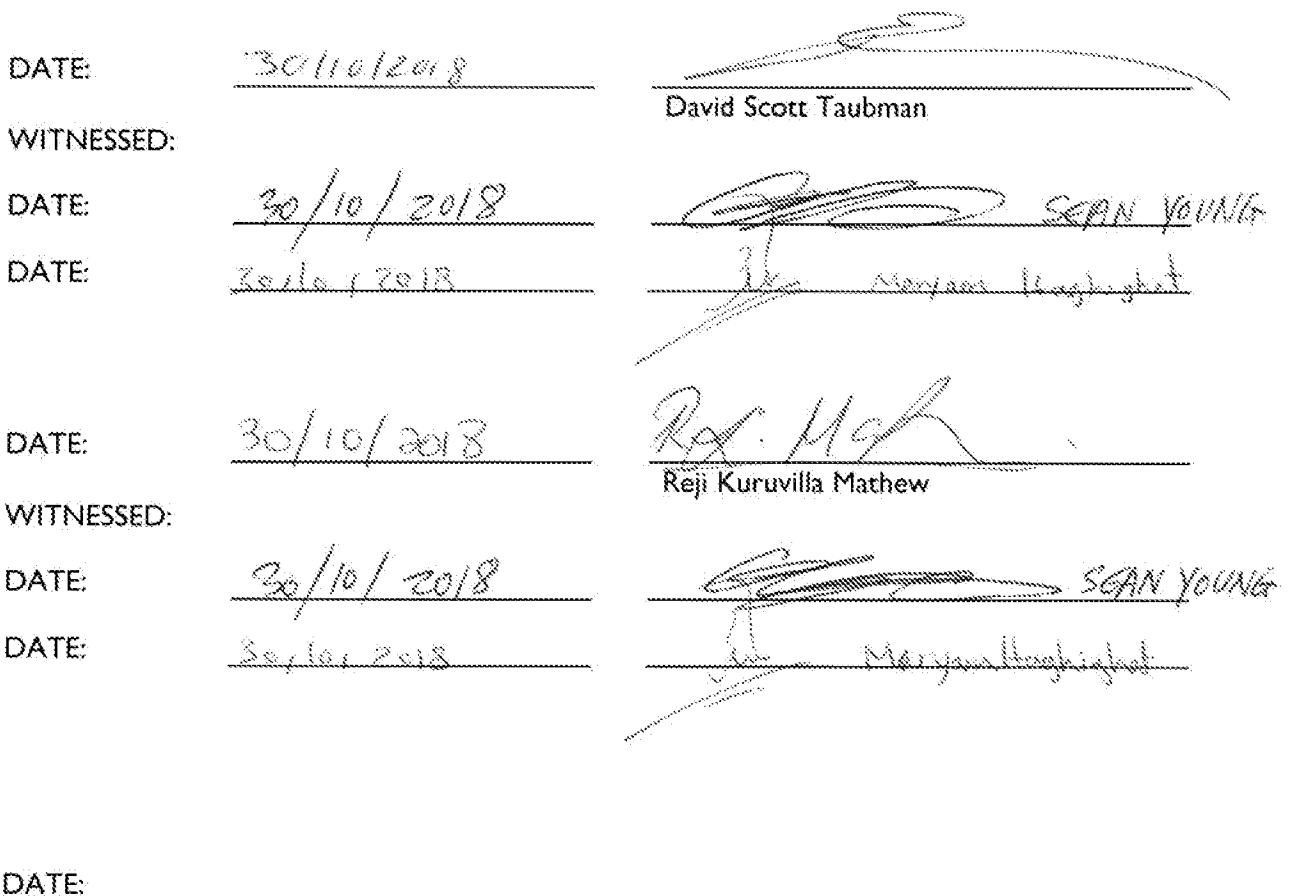 DATE: 30/10/2018
David Scott Taubman
WITNESSED:
DATE: 30/10/2018 SEAN YOUNG
DATE: 30/10/2018 Maryam Haghighat
DATE: 30/10/2018 Reji Mathew
Reji Kuruvilla Mathew
WITNESSED:
DATE: 30/10/2018 SEAN YOUNG
DATE: 30/10/2018 Maryam Haghighat
DATE: